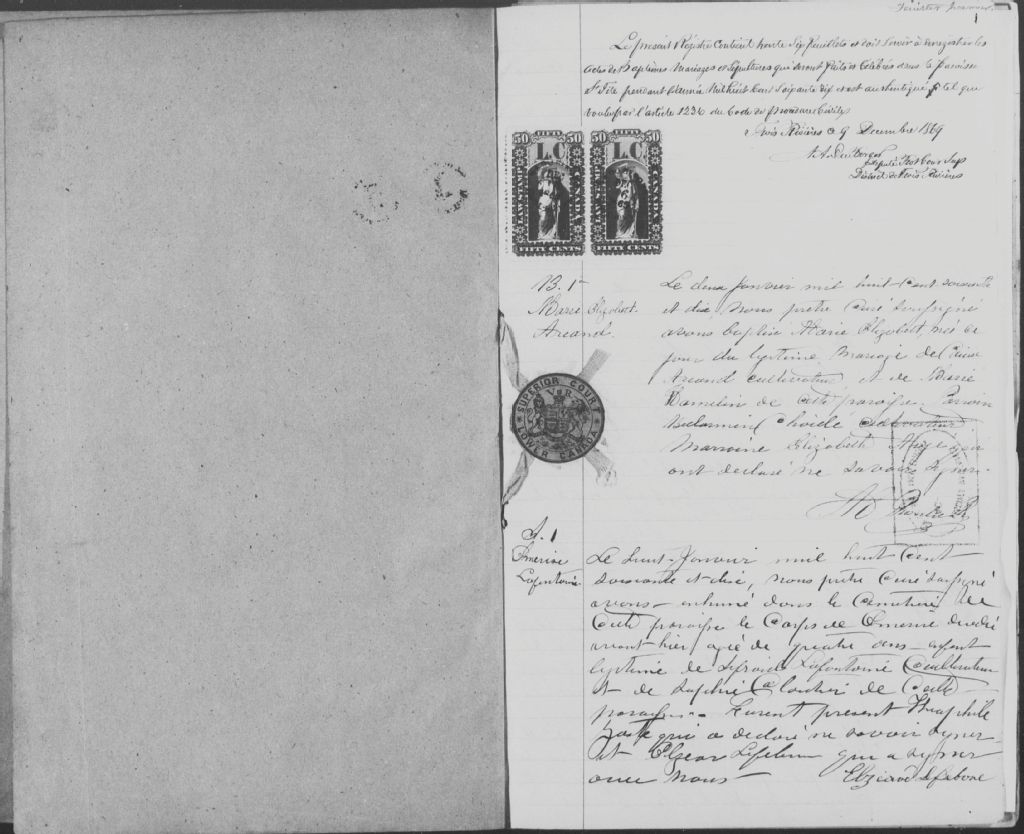 1
Le présent Régistre Contient trente Six feuillets et doit servir à enregistrer les
actes de Baptêmes Mariages et Sépultures qui seront faits et célébrés dans la paroisse
St Tite pendant l'année Mil huit Cent Soixante dix et est authentiqué tel que
voulu par l'article 1236 du Code de procédure Civile
Trois Rivières ce 9 Decembre 1869
Député Prot Cour Sup
District de Trois Rivières
50 FIFTY 50
LC
LAW STAMP
CANADA
FIFTY CENTS
50 FIFTY 50
LC
LAW STAMP
CANADA
FIFTY CENTS
B. 1
Marie Elizabeth
Arcand.
Le deux Janvier mil huit-cent soixante
et dix, nous prêtre curé soussigné
avons baptisé Marie Elizabeth, née ce
jour du légitime mariage de
Arcand cultivateur et de Marie
Hamelin de cette paroisse. Parrain
cultivateur
Marraine Elizabeth
ont déclaré ne savoir signer.
SUPERIOR COURT
VR
LOWER CANADA
S. 1
Omerise
Lafontaine
Le huit Janvier mil huit cent
soixante et dix, nous prêtre Curé soussigné
avons inhumé dans le Cemetière de
Cette paroisse le Corps de Omerise décédé
avant-hier agée de quatre ans enfant
legitime de Lafontaine Cultivateur
et de Sophie Cloutier de Cette
paroisse. Furent present Theophile
qui a déclaré ne savoir signer
et Elzear Lefebvre qui a signer
avec nous
Elzéard Lefebvre